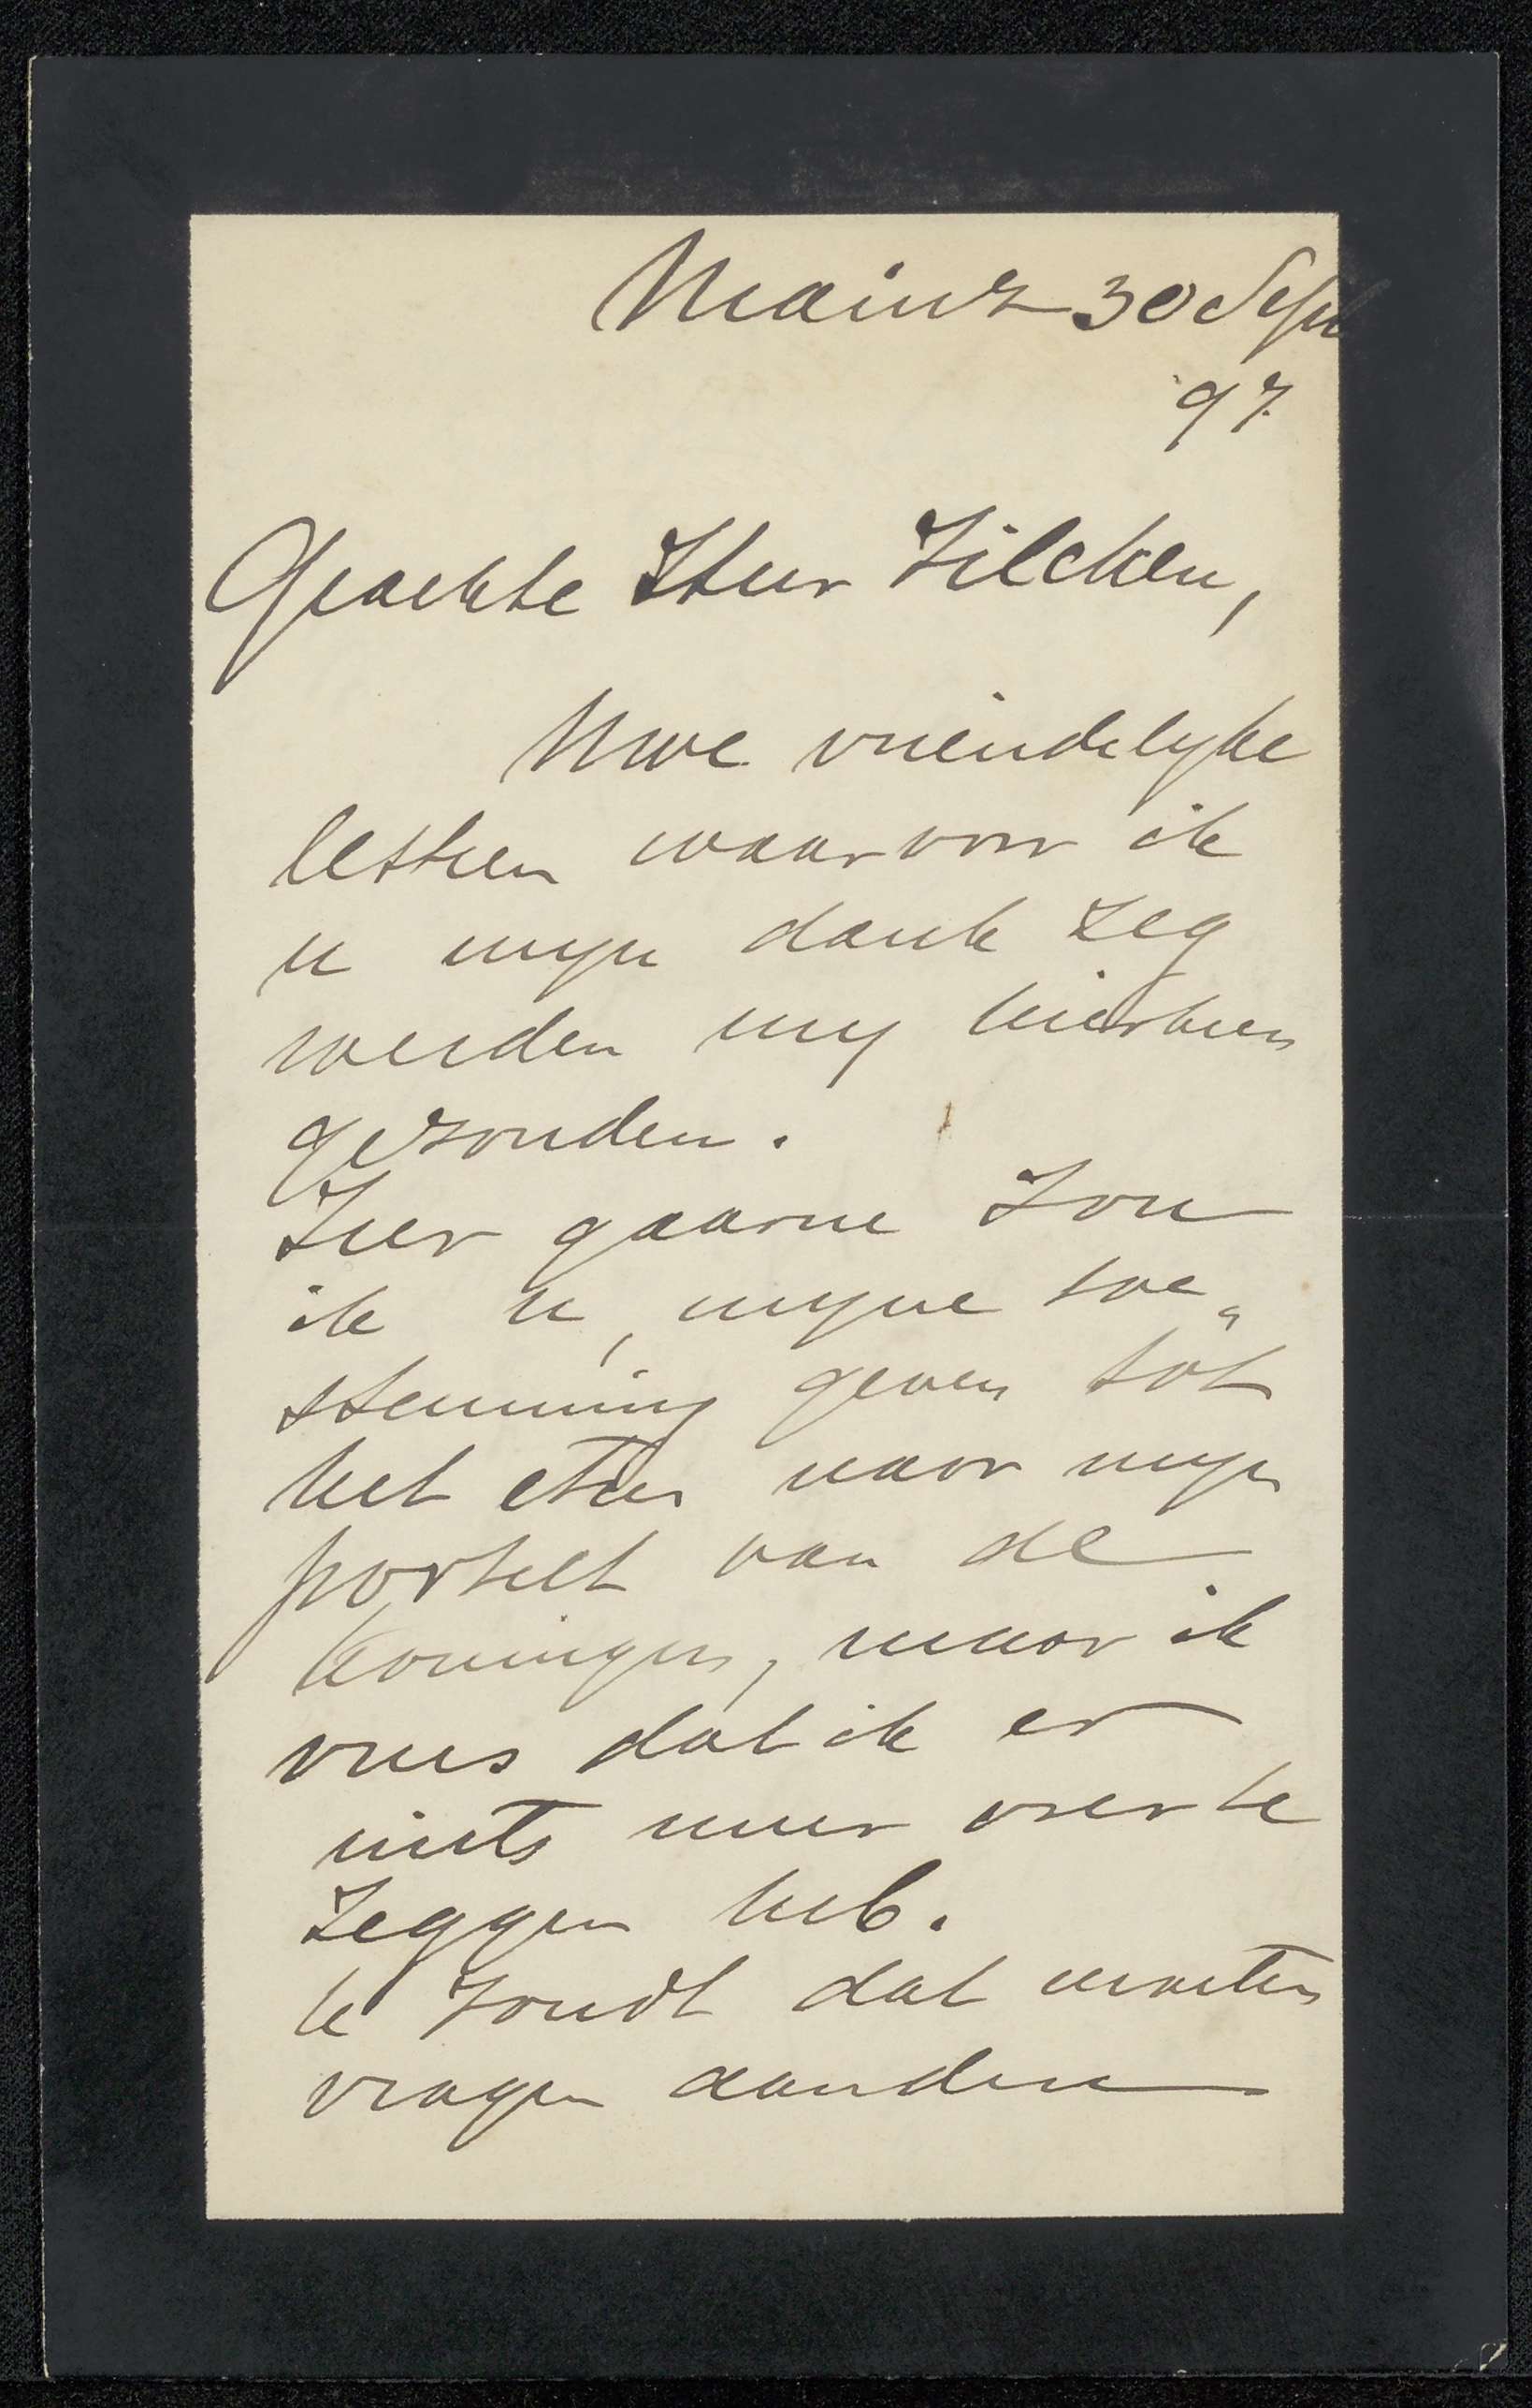 Mainz 30 Sept
'97.
Geachte Heer Zilcken,
Uwe vriendelyke
letteren waarvoor ik
u myn dank zeg
werden my hierheen
gezonden.
Zeer gaarne zou
ik u, myne toe„
stemming geven tot
het etsen naar myn
portret van de
Koningin, maar ik
vrees dat ik er
niets meer over te
zeggen heb.
U zoudt dat moeten
vragen aan den